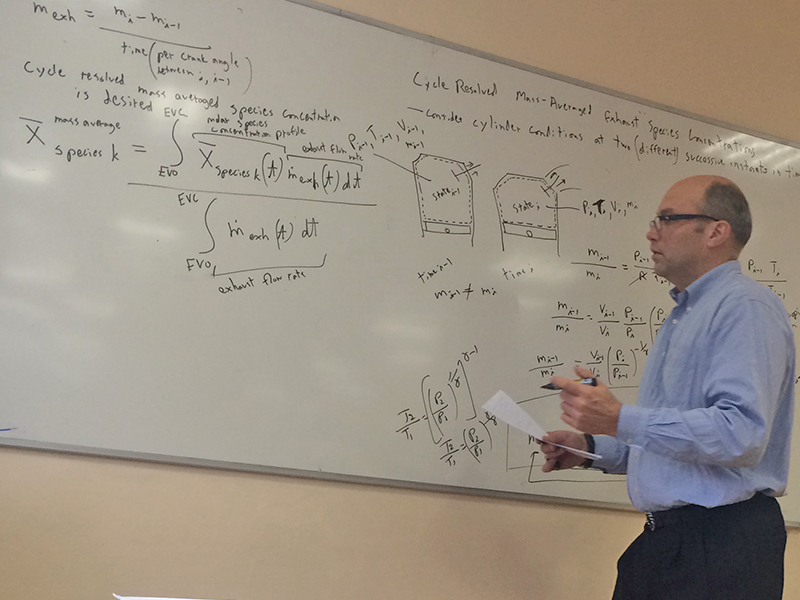 ṁ exh = m i − m i−1
time (per crank angle between i, i−1)
Cycle resolved mass averaged species concentration
is desired
X̄ mass average species k =
EVC
∫
EVO
molar species
concentration profile
X̄ species k (t)
exhaust flow
rate
ṁ exh (t) dt
EVC
∫
EVO
ṁ exh (t) dt
exhaust flow rate
Cycle Resolved Mass-Averaged Exhaust Species Concentrations
— consider cylinder conditions at two (different) successive instants in
P i−1, T i−1, V i−1,
m i−1
state i−1
state i
P i, T i, V i, m i
time i−1
time i
m i−1 ≠ m i
m i−1 / m i = P i−1
P i−1 T i
m i−1 / m i = V i−1 / V i P i−1 / P i
m i−1 / m i = V i−1 / V i (P i / P i−1)^−1/γ
T2 / T1 = [(P2 / P1)^1/γ]^γ−1
T2 / T1 = (P2 / P1)